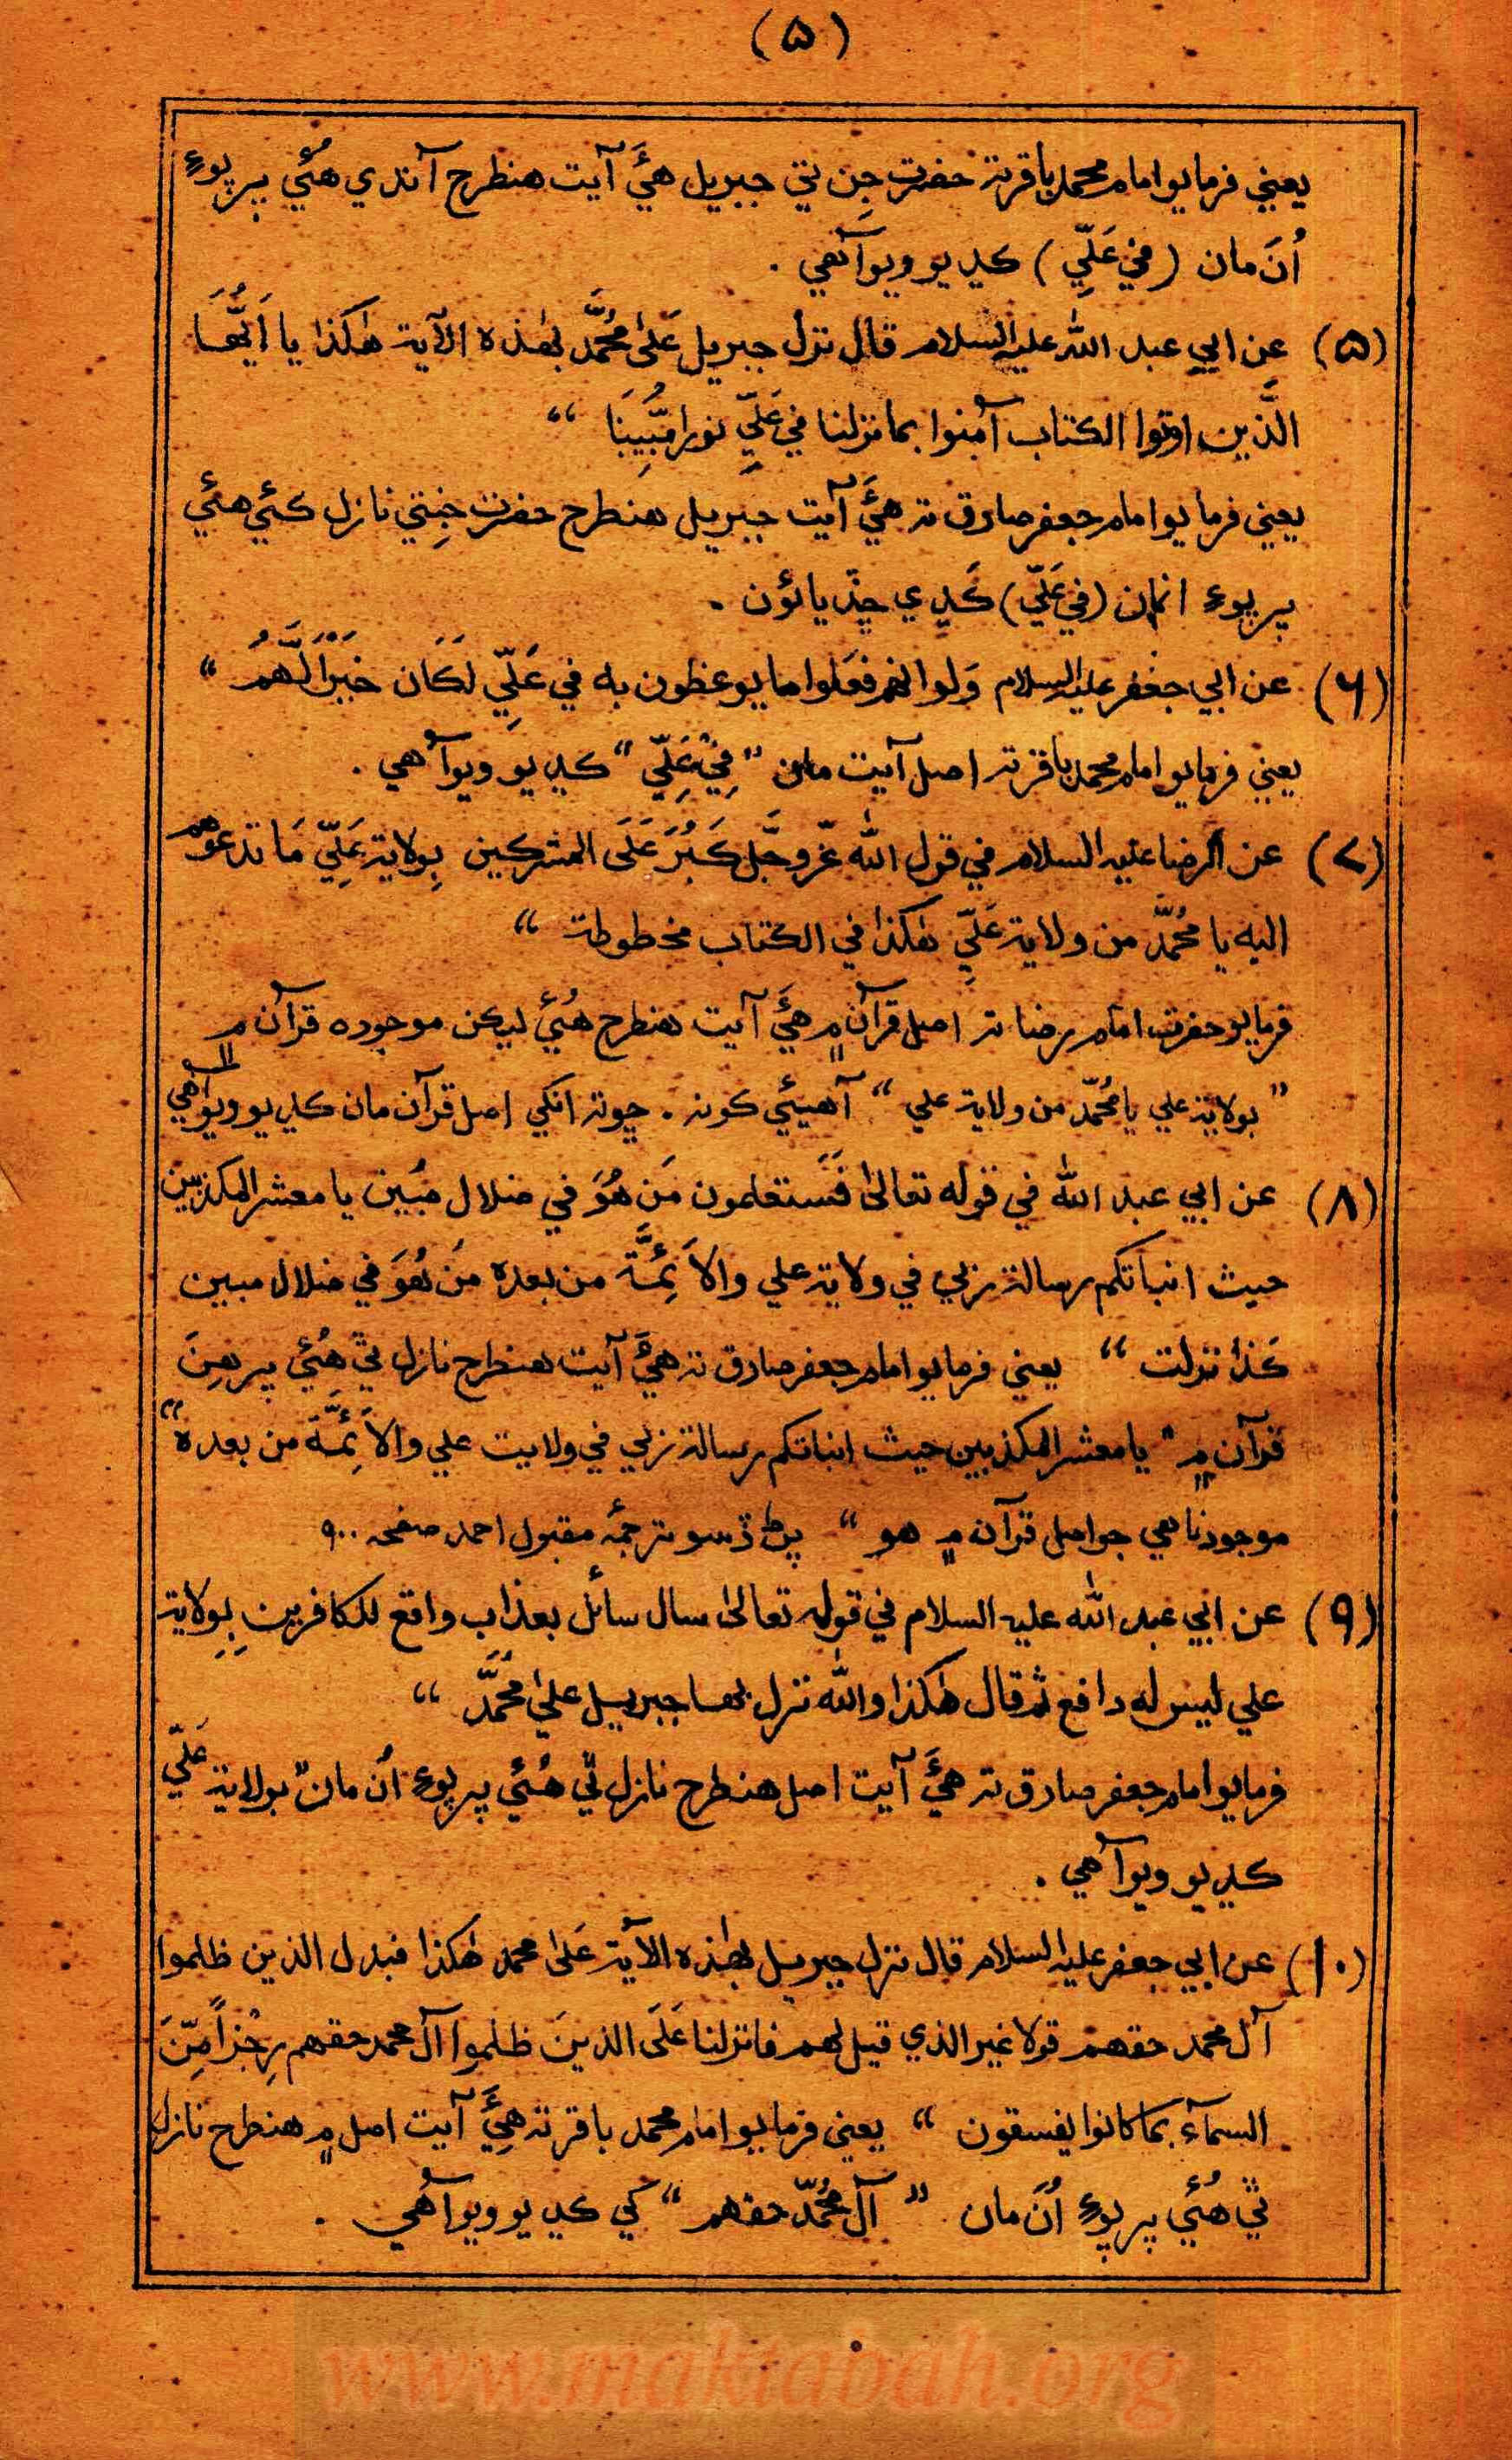 (۵)
يعني فرمايو امام محمد باقر ته حضرت جن تي جبريل هيَّ آيت هنطرح آندي هُئي پر پوءِ
اُنَ مان (في عَلِّي) ڪڍيو ويو آهي .
(۵) عن ابي عبد الله عليه السلام قال نزل جبريل عَلىٰ مُحَمَّد بهٰذه الآية هٰكذا يا اَيُّهَا
الَّذين اوتوا الكتاب آمنوا بما نزلنا في عَلِّي نورا مُّبِينًا “
يعني فرمايو امام جعفر صادق ته هيَّ آيت جبريل هنطرح حضرت جن تي نازل ڪئي هئي
پر پوءِ انمان (في عَلِّي) ڪَڍي ڇڏيائون .
(۶) عن ابي جعفر عليه السلام وَلو انهم فعَلوا ما يوعظون به في عَلِّي لَكَان خَيْرًا لَّهُمْ “
يعني فرمايو امام محمد باقر ته اصل آيت مان ” فِيْ عَلِّي “ ڪڍيو ويو آهي .
(۷) عن الرضا عليه السلام في قول الله عَزّ وجَّل كَبُرَ عَلَى المشركين بِولاية عَلِّي مَا تدعوهم
اليه يا مُحُمَّد من ولاية عَلِّي هٰكذا في الكتاب مخطوطة “
فرمايو حضرت امام رضا ته اصل قرآن ۾ هيَّ آيت هنطرح هُئي ليڪن موجوده قرآن ۾
” بولاية علي يا مُحُمّد من ولاية علي “ آهيئي ڪونه . ڇوته انکي اصل قرآن مان ڪڍيو ويو آهي
(۸) عن ابي عبد الله في قوله تعالىٰ فَسَتعلمون مَن هُوَ في ضلال مبُين يا معشر المكذبين
حيث انباتكم رسالة ربي في ولاية علي والاَئِمَّة من بعده مَن هُوَ في ضلال مبين
كَذا نزلت “ يعني فرمايو امام جعفر صادق ته هيَّ آيت هنطرح نازل ٿي هُئي پر هِنَ
قرآن ۾ ” يا معشر المكذبين حيث انباتكم رسالة ربي في ولايت علي والاَئِمَّة من بعده “
موجود ناهي جو اصل قرآن ۾ هو “ پڻ ڏسو ترجمئہ مقبول احمد صفحہ ۹۰۰
(۹) عن ابي عبد الله عليه السلام في قوله تعالىٰ سال سائل بعذاب واقع للكافرين بِولاية
علي ليس له دافع ثم قال هٰكذا والله نزل بها جبريل علىٰ مُحُمَّد “
فرمايو امام جعفر صادق ته هيَّ آيت اصل هنطرح نازل ٿي هُئي پر پوءِ اُن مان ” بولاية عَلِّي
ڪڍيو ويو آهي .
(۱۰) عن ابي جعفر عليه السلام قال نزل جبريل بهٰذه الآية عَلىٰ محمد هٰكذا فبدل الذين ظلموا
آل محمد حقهم قولا غير الذي قيل لهم فانزلنا عَلَى الذينَ ظلموا آل محمد حقهم رِجْزاً مِّنَ
السمآء بما كانوا يفسقون “ يعني فرمايو امام محمد باقر ته هيَّ آيت اصل ۾ هنطرح نازل
ٿي هُئي پر پوءِ اُنَ مان ” آل مُحُمّد حقهم “ کي ڪڍيو ويو آهي .
www.maktabah.org